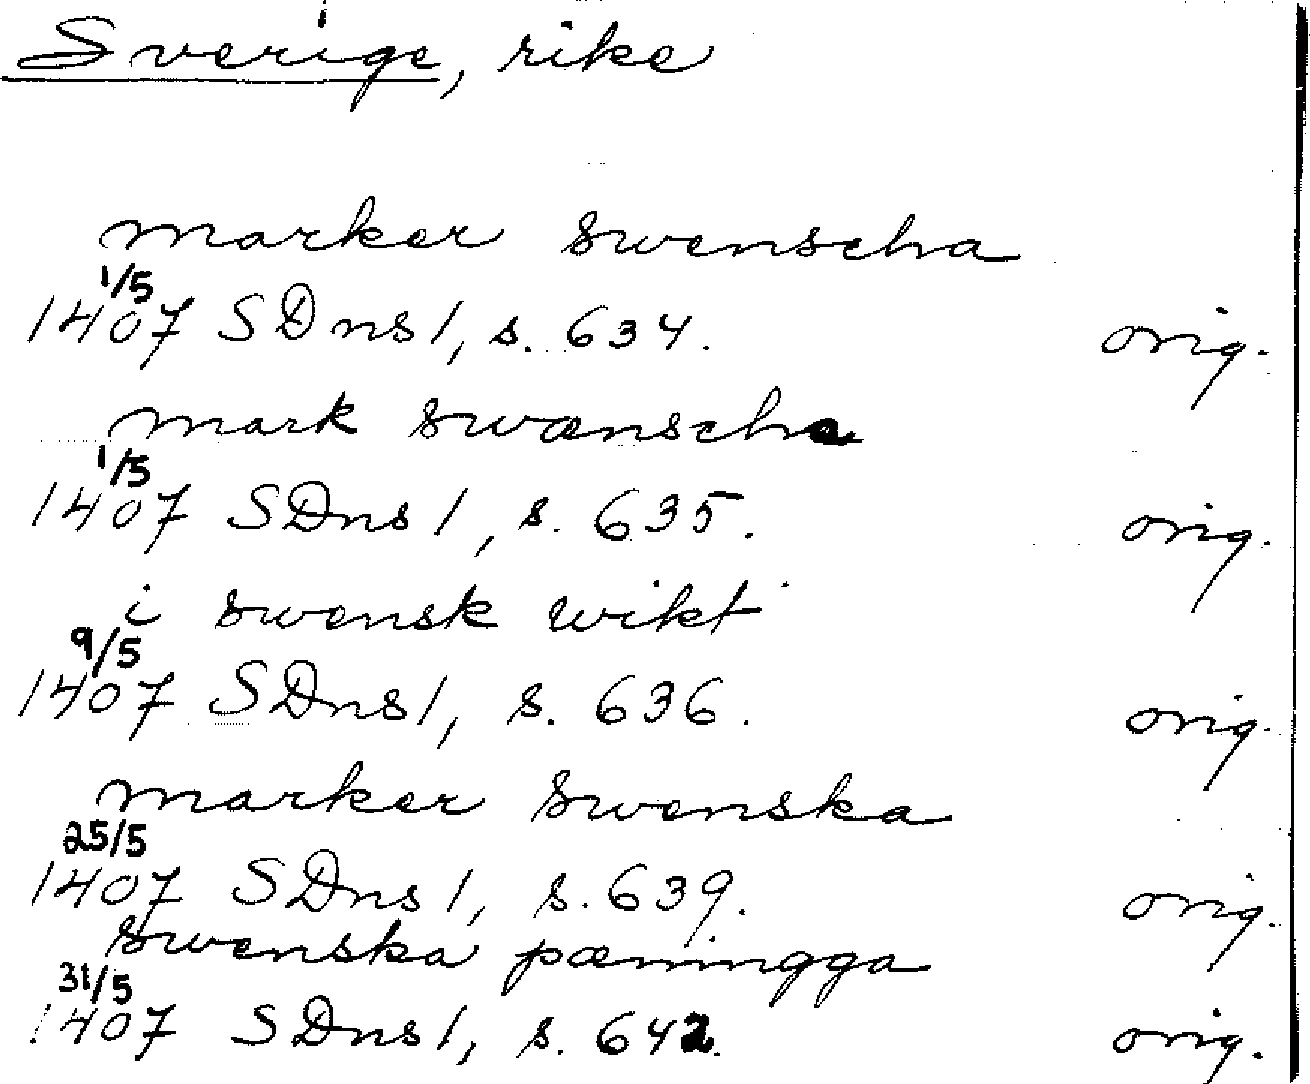 Sverige, rike
marker swenscha
1/5
1407 SDns 1, s. 634. orig.
mark swænscha
1/5
1407 SDns 1, s. 635. orig.
i swensk wikt
9/5
1407 SDns 1, s. 636. orig.
marker swenska
25/5
1407 SDns 1, s. 639. orig.
swenska pæningga
31/5
1407 SDns 1, s. 642. orig.